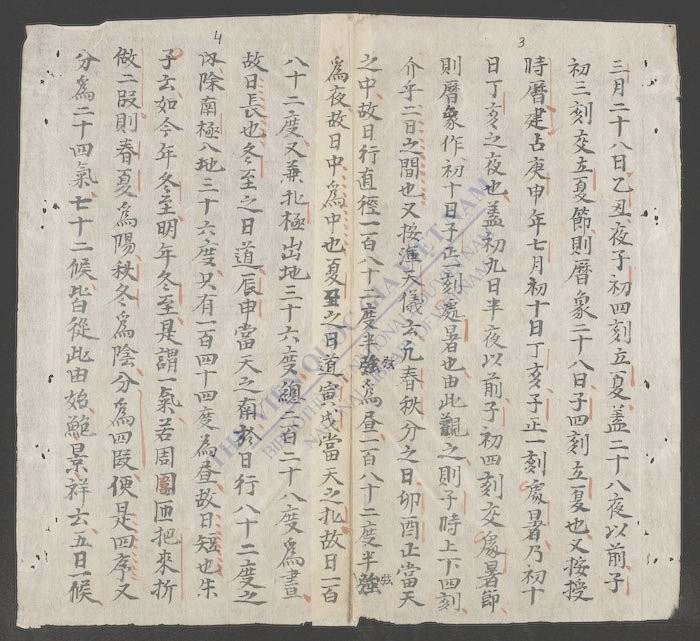 3
三月二十八日乙丑夜子初四刻立夏蓋二十八夜以前子
初三刻交立夏節則曆象二十八日子四刻立夏也又按授
時曆建占庚申年七月初十日丁亥子正一刻處暑乃初十
日丁亥之夜也蓋初九日半夜以前子初四刻交處暑節
則曆象作初十日子正一刻處暑也由此觀之則子時上下四刻
介乎二日之間也又按渾天儀云凢春秋分之日卯酉正當天
之中故日行直徑一百八十二度半強弦為昼一百八十二度半強弦
4
為夜故日中為中也夏至之日道寅戌當天之北故日一百
八十二度又兼北極出地三十六度總二百二十八度為晝
故日長也冬至之日道辰申當天之南於日行八十二度之
內除南極入地三十六度只有一百四十四度為昼故日短也朱
子云如今年冬至明年冬至是謂一氣若周圍匝把來折
做二段則春夏為陽秋冬為陰分為四段便是四序又
分為二十四氣七十二候皆從此由始鮑景祥云五日一候
THƯ VIỆN QUỐC GIA VIỆT NAM
NATIONAL LIBRARY OF VIETNAM